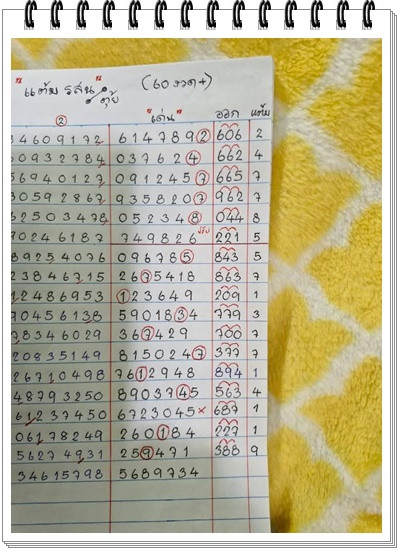 "แต้ม รสน" (60 งวด+)
ตุ้ย
② "เด่น" ออก แต้ม
34609172 614789② 606 2
60932784 037624④ 662 4
56940127 091245⑦ 665 7
30592867 935820⑦ 962 7
62503478 052348 044 8
90246187 749826 221 5
89254076 096785 843 5
23846715 2675418 863 7
12486953 ①23649 209 1
90456138 5901834 779 3
78346029 367429 700 7
20835149 815024⑦ 377 7
26710498 7612948 894 1
48793250 8903745 563 4
61237450 6723045× 687 1
06178249 260184 227 1
56274931 259471 388 9
34615798 5689734